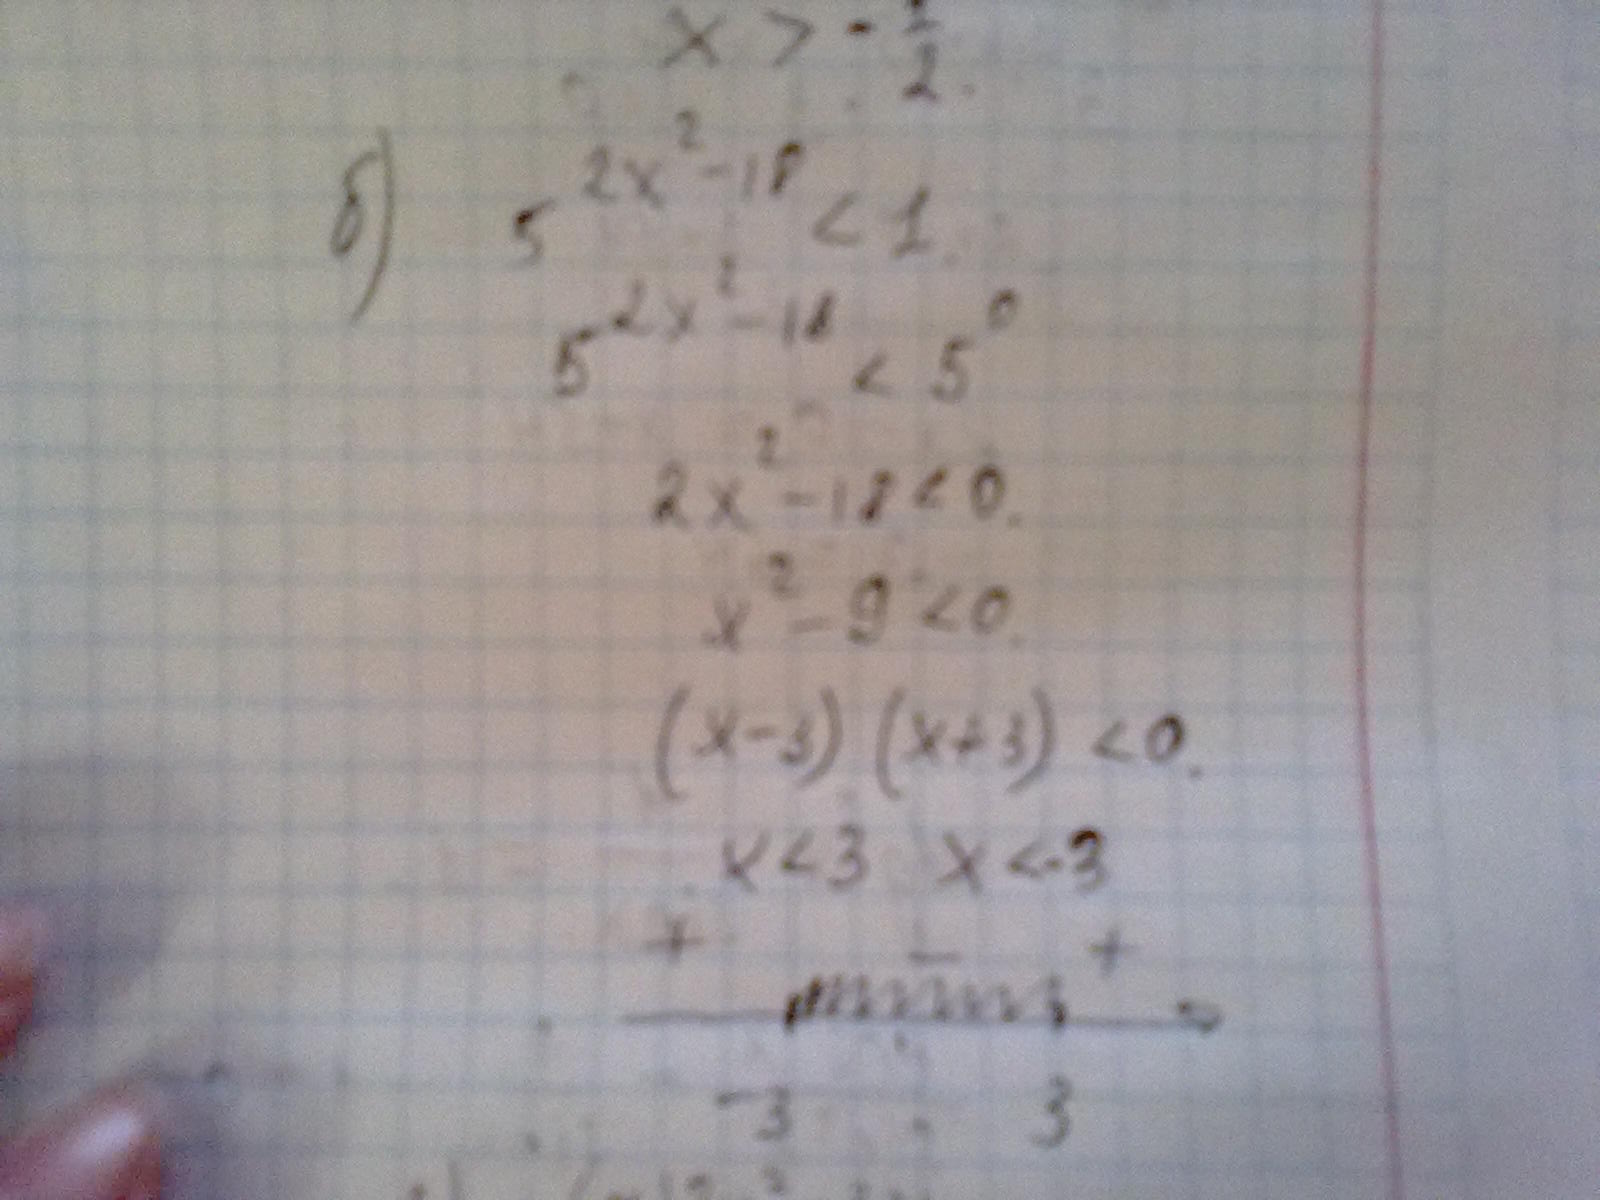 x > - 1/2.
б) 5^(2x²-18) < 1.
5^(2x²-18) < 5⁰
2x² - 18 < 0.
x² - 9 < 0.
(x-3) (x+3) < 0.
x < 3 x < -3
+ - +
-3 3